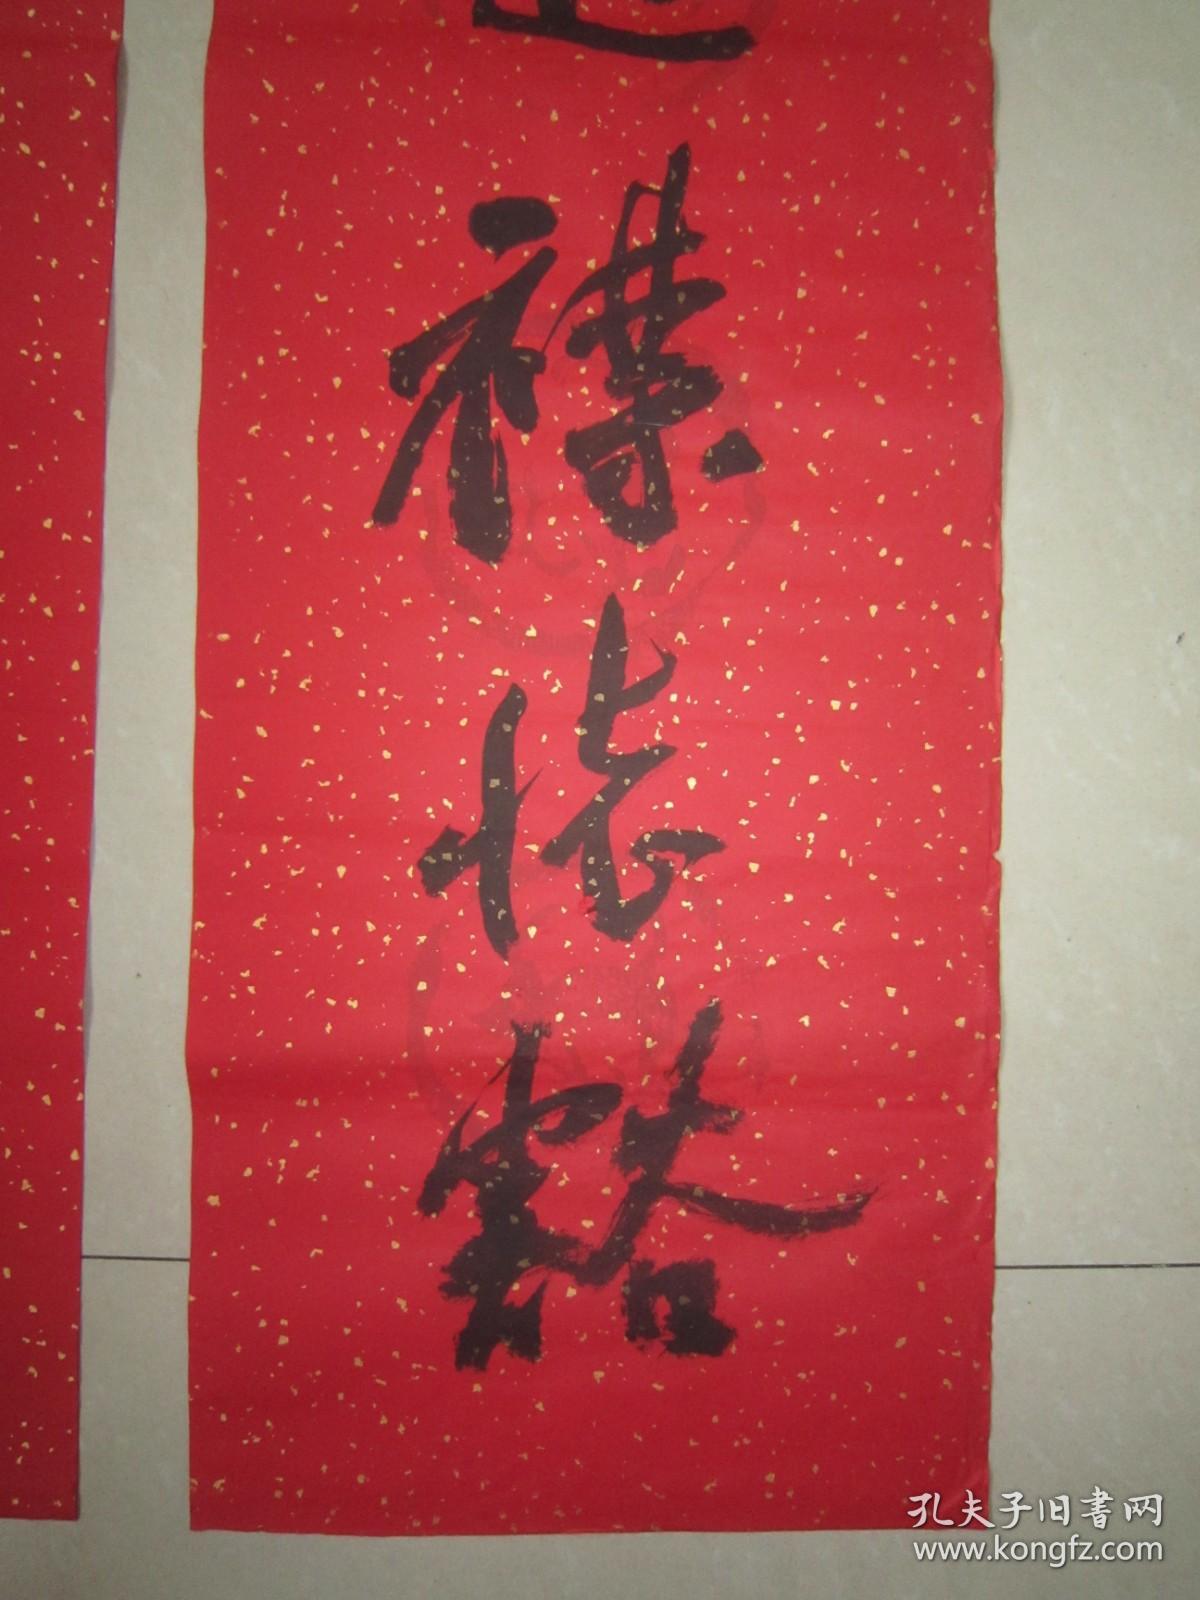 襟怀豁
孔夫子旧书网
www.kongfz.com